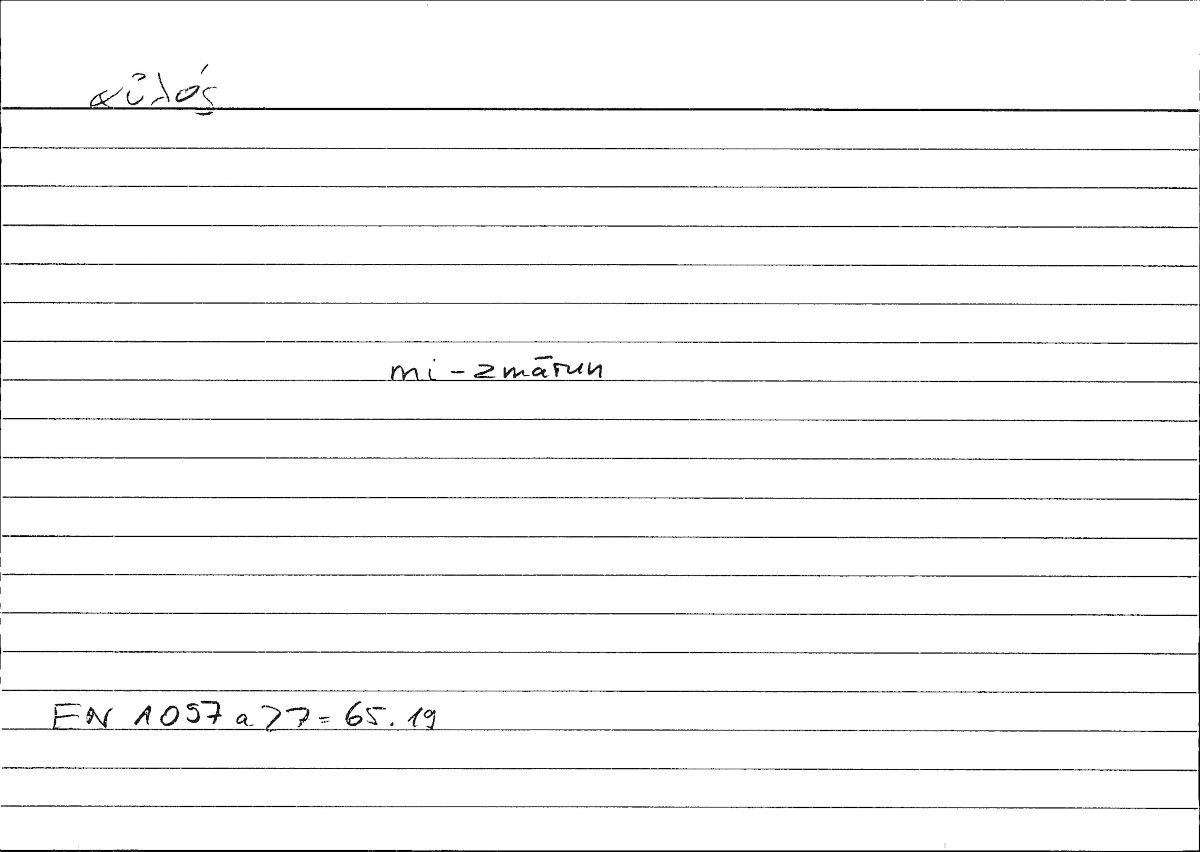 αὐλός
mi-zmārun
EN 1097 a 27 = 65.19